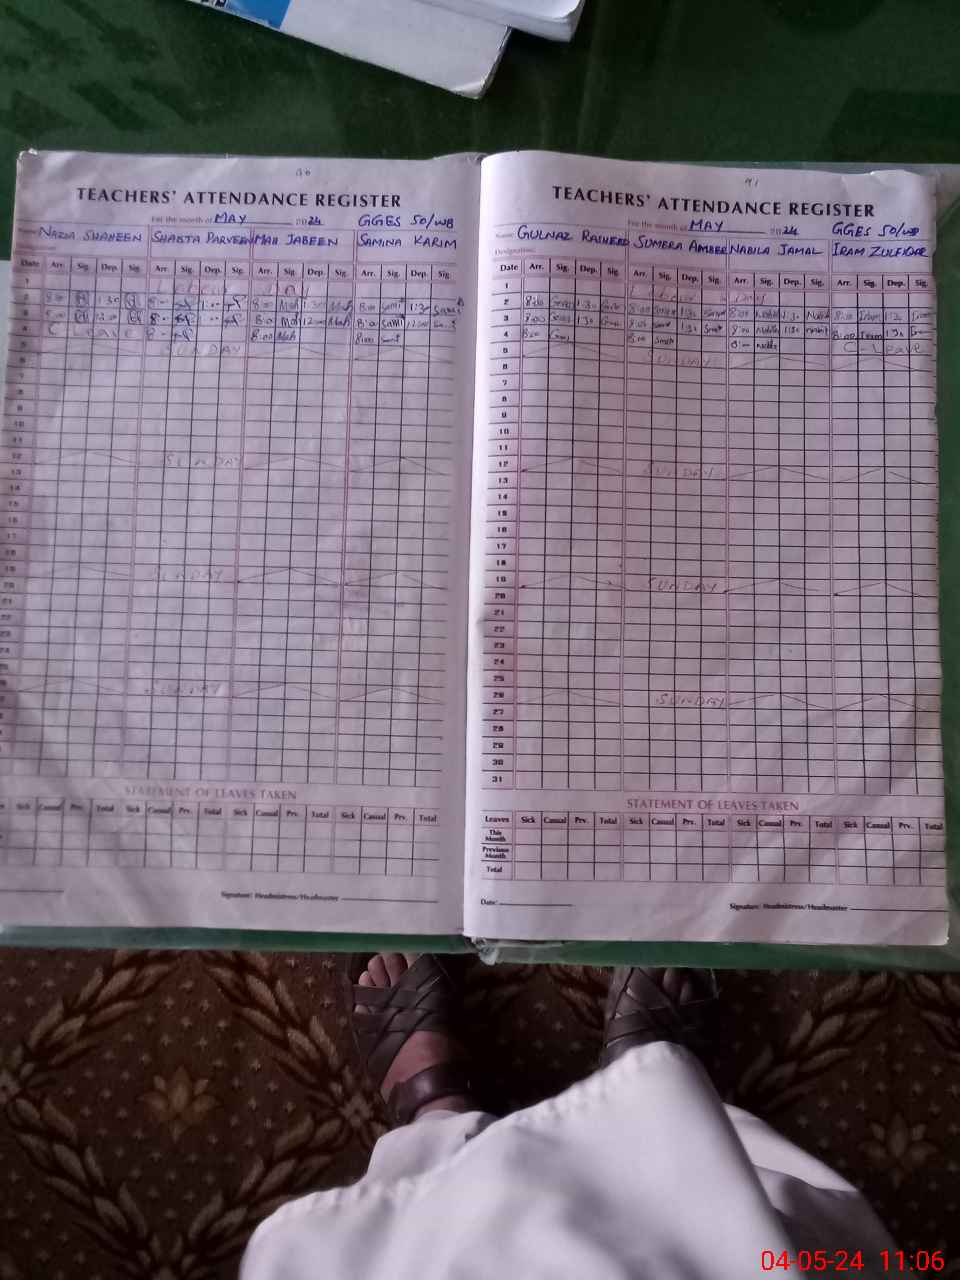 90
TEACHERS' ATTENDANCE REGISTER
For the month of MAY 2024 GGES 50/WB
NAZIA SHAHEEN SHABTA PARVEEN MAH JABEEN SAMINA KARIM
Date Arr. Sig. Dep. Sig. Arr. Sig. Dep. Sig. Arr. Sig. Dep. Sig. Arr. Sig. Dep. Sig.
1 Labour Day
2 8:00 1:30 8:- 1:- 8:00 Mah 1:30 Mah 8:00 Sami 1:30 Sami
3 8:00 12:00 8:- 1:- 8:0 Mah 12:00 Mah 8:0 Sami 12:00
4 C Leave 8:- 8:00 Mah 8:00 Sami
5 SUNDAY
6
7
8
9
10
11
12 SUNDAY
13
14
15
16
17
18
19 SUNDAY
20
21
22
23
24
25
SUNDAY
STATEMENT OF LEAVES TAKEN
Sick Casual Prv. Total Sick Casual Prv. Total Sick Casual Prv. Total Sick Casual Prv. Total
Signature: Headmistress/Headmaster
91
TEACHERS' ATTENDANCE REGISTER
For the month of MAY 2024 GGES 50/WB
Name: GULNAZ RASHEED SUMERA AMBER NABILA JAMAL IRAM ZULFIQAR
Designation:
Date Arr. Sig. Dep. Sig. Arr. Sig. Dep. Sig. Arr. Sig. Dep. Sig. Arr. Sig. Dep. Sig.
1 Labour Day
2 8:00 1:30 8:00 1:30 8:00 Nabila 1:30 Nabila 8:00 Iram 1:30 Iram
3 8:00 1:30 8:00 1:30 8:00 Nabila 1:30 Nabila 8:00 Iram 1:30
4 8:00 8:00 8:- C-Leave
5 SUNDAY
6
7
8
9
10
11
12 SUNDAY
13
14
15
16
17
18
19 SUNDAY
20
21
22
23
24
25
26 SUNDAY
27
28
29
30
31
STATEMENT OF LEAVES TAKEN
Leaves Sick Casual Prv. Total Sick Casual Prv. Total Sick Casual Prv. Total Sick Casual Prv. Total
This Month
Previous Month
Total
Date:
Signature: Headmistress/Headmaster
04-05-24 11:06